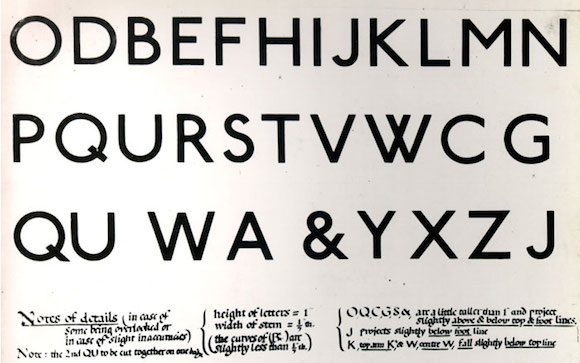 ODBEFHIJKLMN
PQURSTVWCG
QU WA & YXZJ
Notes of details (in case of
some being overlooked or
in case of slight inaccuracies)
Note: the 2nd QU to be cut together on one body
height of letters = 1"
width of stem = 1/7 in.
the curves of (B,) are
(slightly less than 1/7 in.
O Q C G S & are a little taller than 1" and project
slightly above & below top & foot lines.
J projects slightly below foot line
K, top arm K's & W, centre W, fall slightly below top line